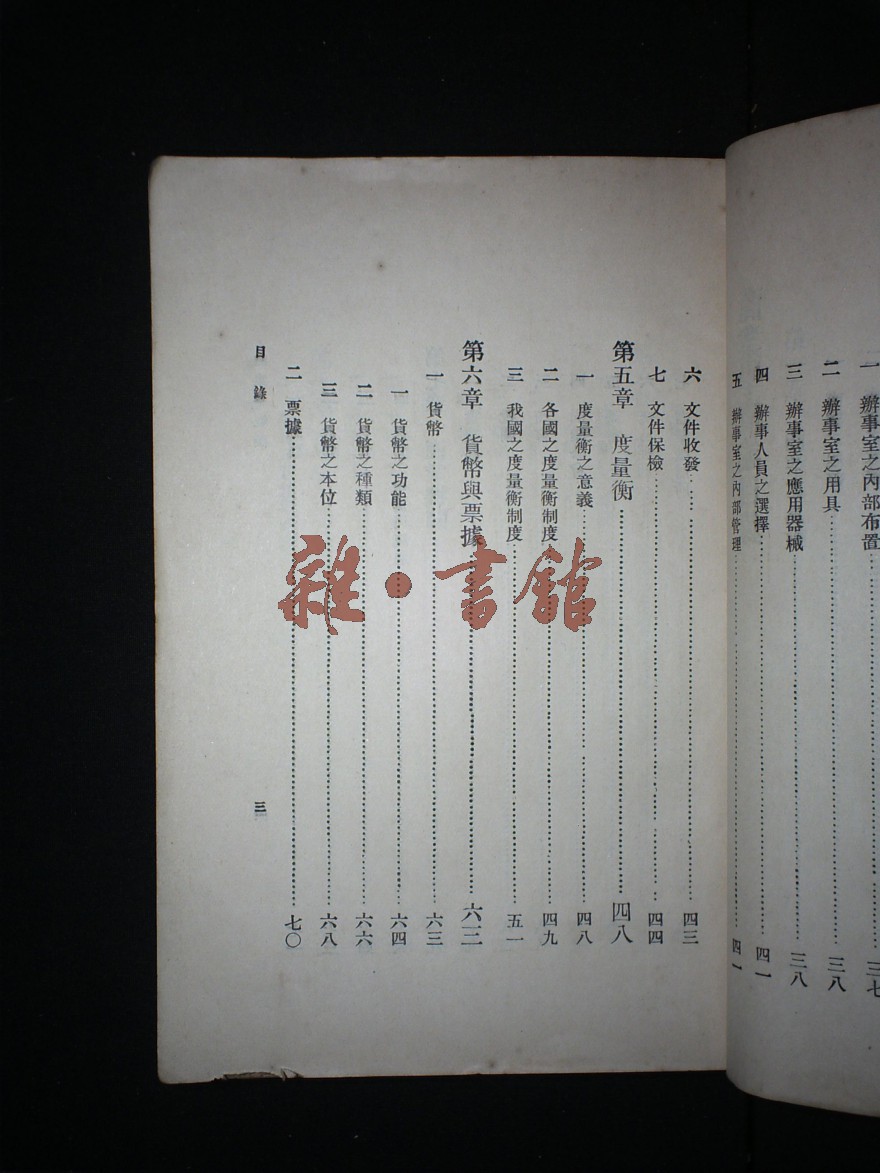 一 辦事室之內部布置……三七
二 辦事室之用具……三八
三 辦事室之應用器械……三八
四 辦事人員之選擇……四一
五 辦事室之內部管理……四一
六 文件收發……四三
七 文件保檢……四四
第五章 度量衡……四八
一 度量衡之意義……四八
二 各國之度量衡制度……四九
三 我國之度量衡制度……五一
第六章 貨幣與票據……六三
一 貨幣……六三
一 貨幣之功能……六四
二 貨幣之種類……六六
三 貨幣之本位……六八
二 票據……七〇
目錄
三
雜·書館